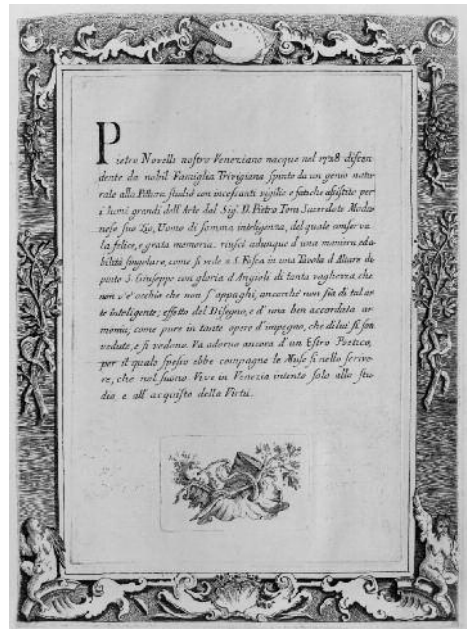 Pietro Novelli nostro Veneziano nacque nel 1728 discen
dente da nobil Famiglia Trivigiana spinto da un genio natu
rale alla Pittura studiò con incessanti vigilie e fatiche assistite per
i lumi grandi dell'Arte dal Sig. D. Pietro Toni Sacerdote Moda
nese suo Zio, Uomo di somma inteligenza, del quale conserva
la felice, e grata memoria. riuscì adunque d'una maniera, ed a
bilità singolare, come si vede a S. Fosca in una Tavola d'Altare di
pinto S. Giuseppe con gloria d'Angioli di tanta vaghezza che
non v'è occhio che non s'appaghi, ancorchè non sia di tal ar
te inteligente; effetto del Disegno, e d'una ben accordata ar
monia; come pure in tante opere d'impegno, che di lui si son
vedute, e si vedono. Va adorno ancora d'un Estro Poetico,
per il quale spesso ebbe compagne le Muse sì nello scrive
re, che nel suono. Vive in Venezia intento solo allo stu
dio, e all'acquisto della Virtù.